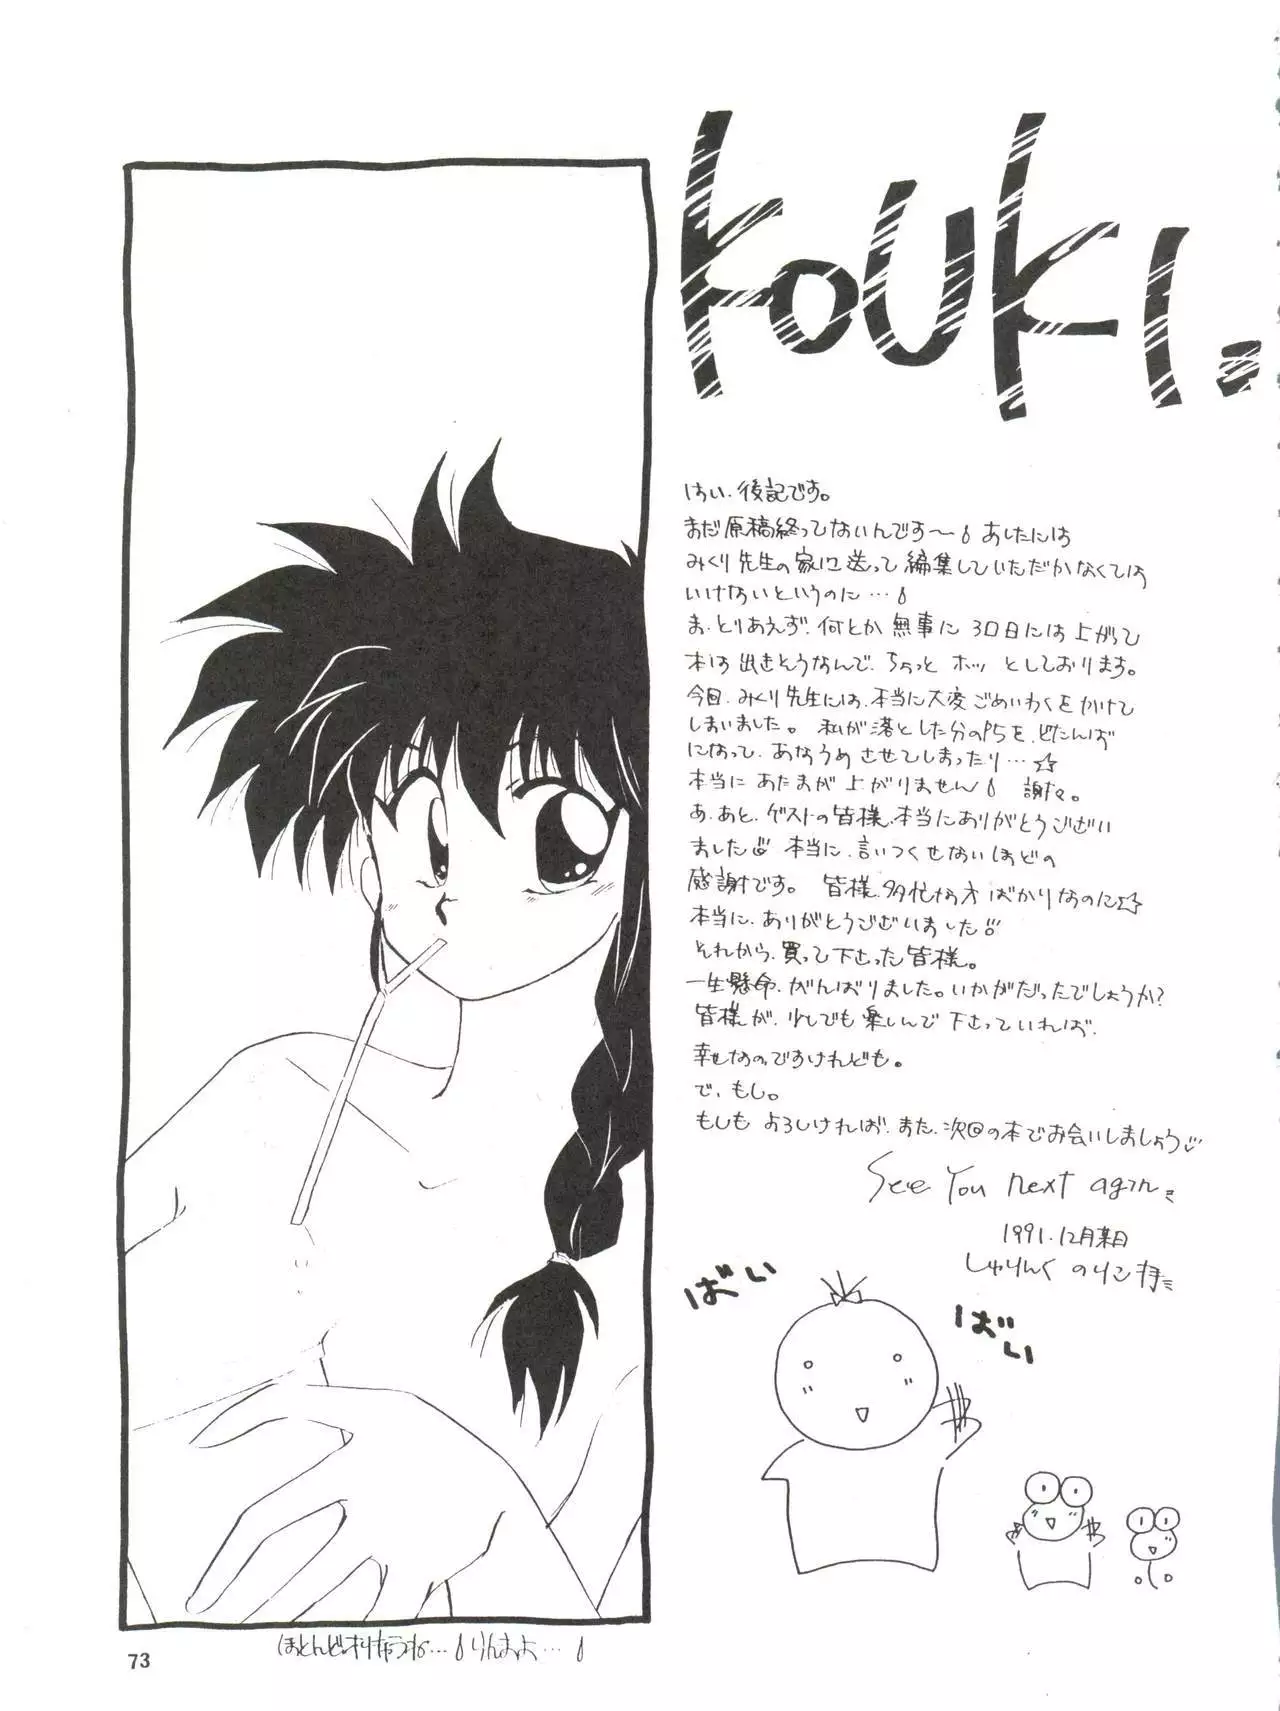 KOUKI.
はい、後記です。
まだ原稿終ってないんです〜 あしたには
みくり先生の家に送って編集していただかなくては
いけないというのに…
ま、とりあえず、何とか無事に30日には上がって
本は出せそうなんで、ちょっとホッとしております。
今回、みくり先生には、本当に大変ごめいわくをかけて
しまいました。私が落とした分のP5を、どたんば
になって、あなうめさせてしまったり…☆
本当にあたまが上がりません 謝々。
あ、あと、ゲストの皆様、本当にありがとうござい
ました 本当に、言いつくせないほどの
感謝です。皆様、多忙な方ばかりなのに☆
本当に、ありがとうございました
それから、買って下さった皆様。
一生懸命、がんばりました。いかがだったでしょうか?
皆様が、少しでも楽しんで下さっていれば、
幸せなのですけれども。
で、もし。
もしもよろしければ、また、次回の本でお会いしましょう
See You next again
1991.12月末日
しゅりんく のりこ
ばい
ばい
ほとんどオリキャラね…
73